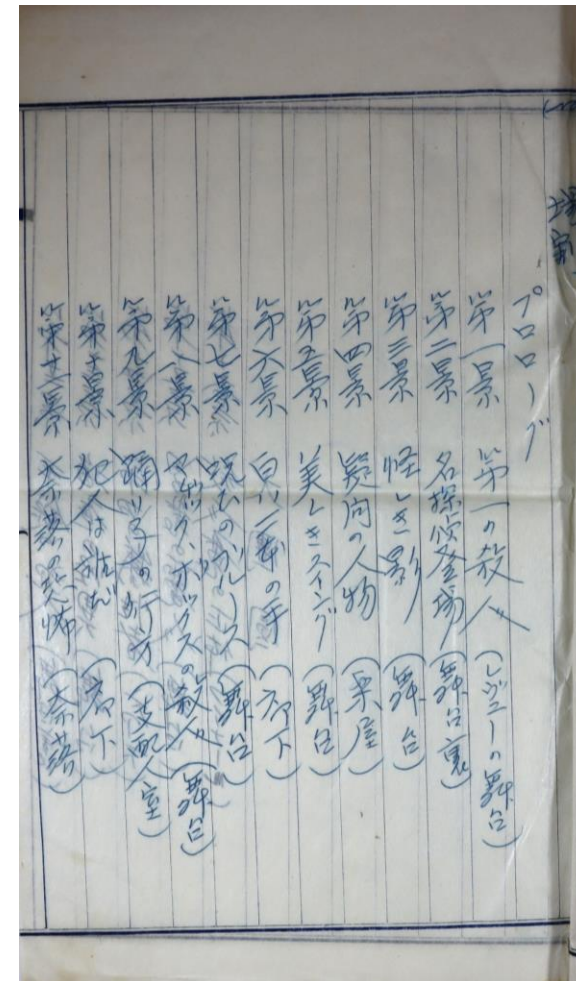 場割
プロローグ
第一景 第一の殺人 (レヴューの舞台)
第二景 名探偵登場 (舞台裏)
第三景 怪しき影 (舞台)
第四景 疑問の人物 (楽屋)
第五景 美しきスイング (舞台)
第六景 白い二本の手 (廊下)
第七景 呪ひのブルース (舞台)
第八景 マヂック、ボックスの殺人 (舞台)
第九景 踊り子の行方 (支配人室)
第十景 犯人は誰だ (廊下)
第十一景 奈落の恐怖 (奈落)